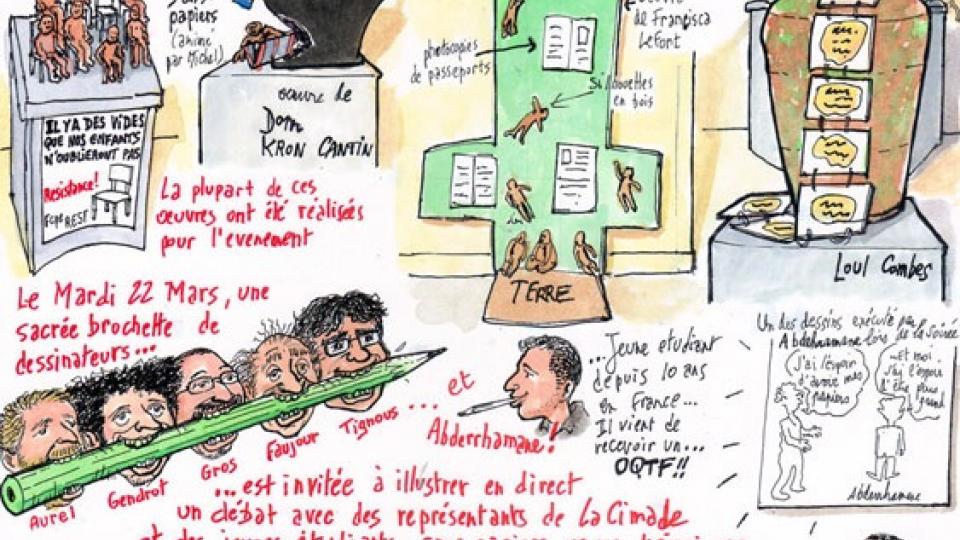 papiers
(animé
par Michel)
IL Y A DES VIDES
QUE NOS ENFANTS
N'OUBLIERONT PAS
Resistance!
oeuvre de
Dom
KRON CANTIN
photocopies
de passeports
de Francisca
Lefort
Silhouettes
en bois
TERRE
Loul Combes
La plupart de ces
œuvres ont été réalisées
pour l'evenement
Le Mardi 22 Mars, une
sacrée brochette de
dessinateurs...
Aurel
Gendrot
Gros
Faujour
Tignous
... et
Abderrhamane!
...Jeune etudiant
depuis 10 ans
en France...
Il vient de
recevoir un...
OQTF!!
Un des dessins exécuté par
Abderhamane lors de la soirée
J'ai l'espoir
d'avoir mes
papiers
...et moi
j'ai l'espoir
d'être plus
grand
Abderrhamane
...est invitée à illustrer en direct
un débat avec des représentants de La Cimade